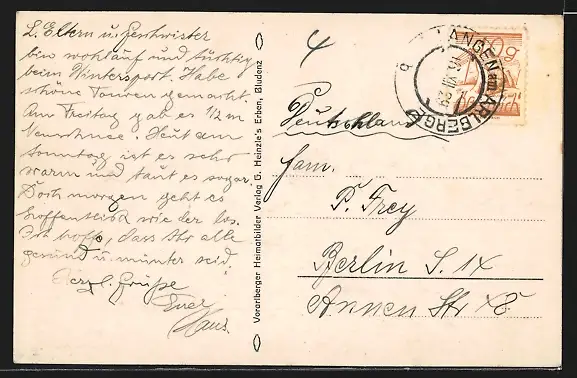 L. Eltern u. Geschwister
bin wohlauf und tüchtig
beim Wintersport. Habe
schöne Touren gemacht.
Am Freitag gab es 1/2 m
Neuschnee. Heut am
Sonntag ist es sehr
warm und taut es sogar.
Doch morgen geht es
hoffentlich wieder los.
Ich hoffe, dass Ihr alle
gesund u. munter seid.
Herzl. Grüße
Euer
Hans.
Vorarlberger Heimatbilder Verlag G. Heinzle's Erben, Bludenz
LANGEN am ARLBERG
Deutschland
Fam.
P. Frey
Berlin S. 14
Annen Str